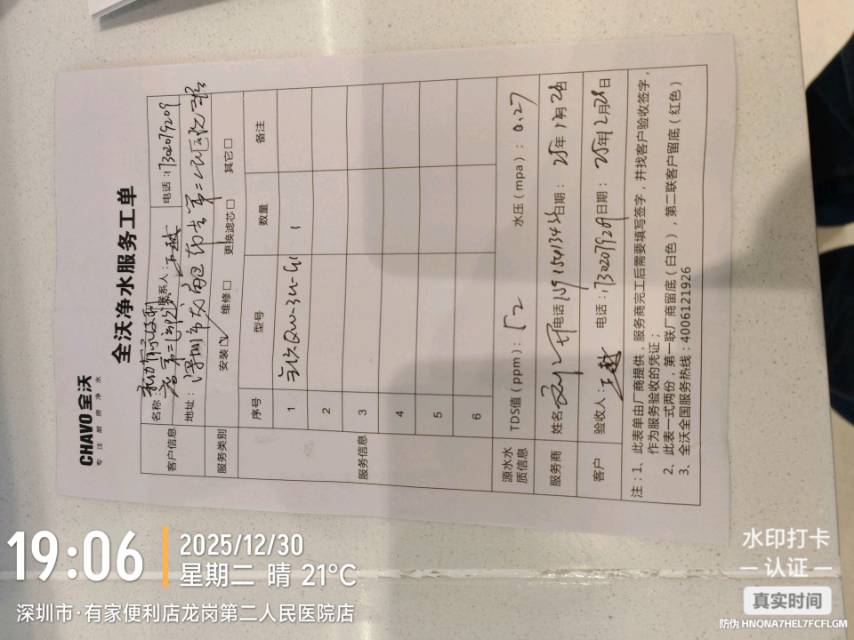 CHAVO全沃
专注厨房净水
全沃净水服务工单
客户信息
名称:
联系人:王越
电话:17302079209
地址:深圳市龙岗区
服务类别
安装☑ 维修□ 更换滤芯□ 其它□
服务信息
序号 型号 数量 备注
1 全沃QW-3U-G1 1
2
3
4
5
6
源水水质信息
TDS值(ppm):52
水压(mpa):0.27
服务商
姓名
电话
日期:25年
客户
验收人:王越
电话:17302079209
日期:25年12月28日
注:1、此表单由厂商提供,服务商完工后需要填写签字,并找客户验收签字,
作为服务验收的凭证;
2、此表一式两份,第一联厂商留底(白色),第二联客户留底(红色)
3、全沃全国服务热线:4006121926
19:06
2025/12/30
星期二 晴 21℃
深圳市·有家便利店龙岗第二人民医院店
水印打卡
认证
真实时间
防伪 HNQNA7HEL7FCFLGM